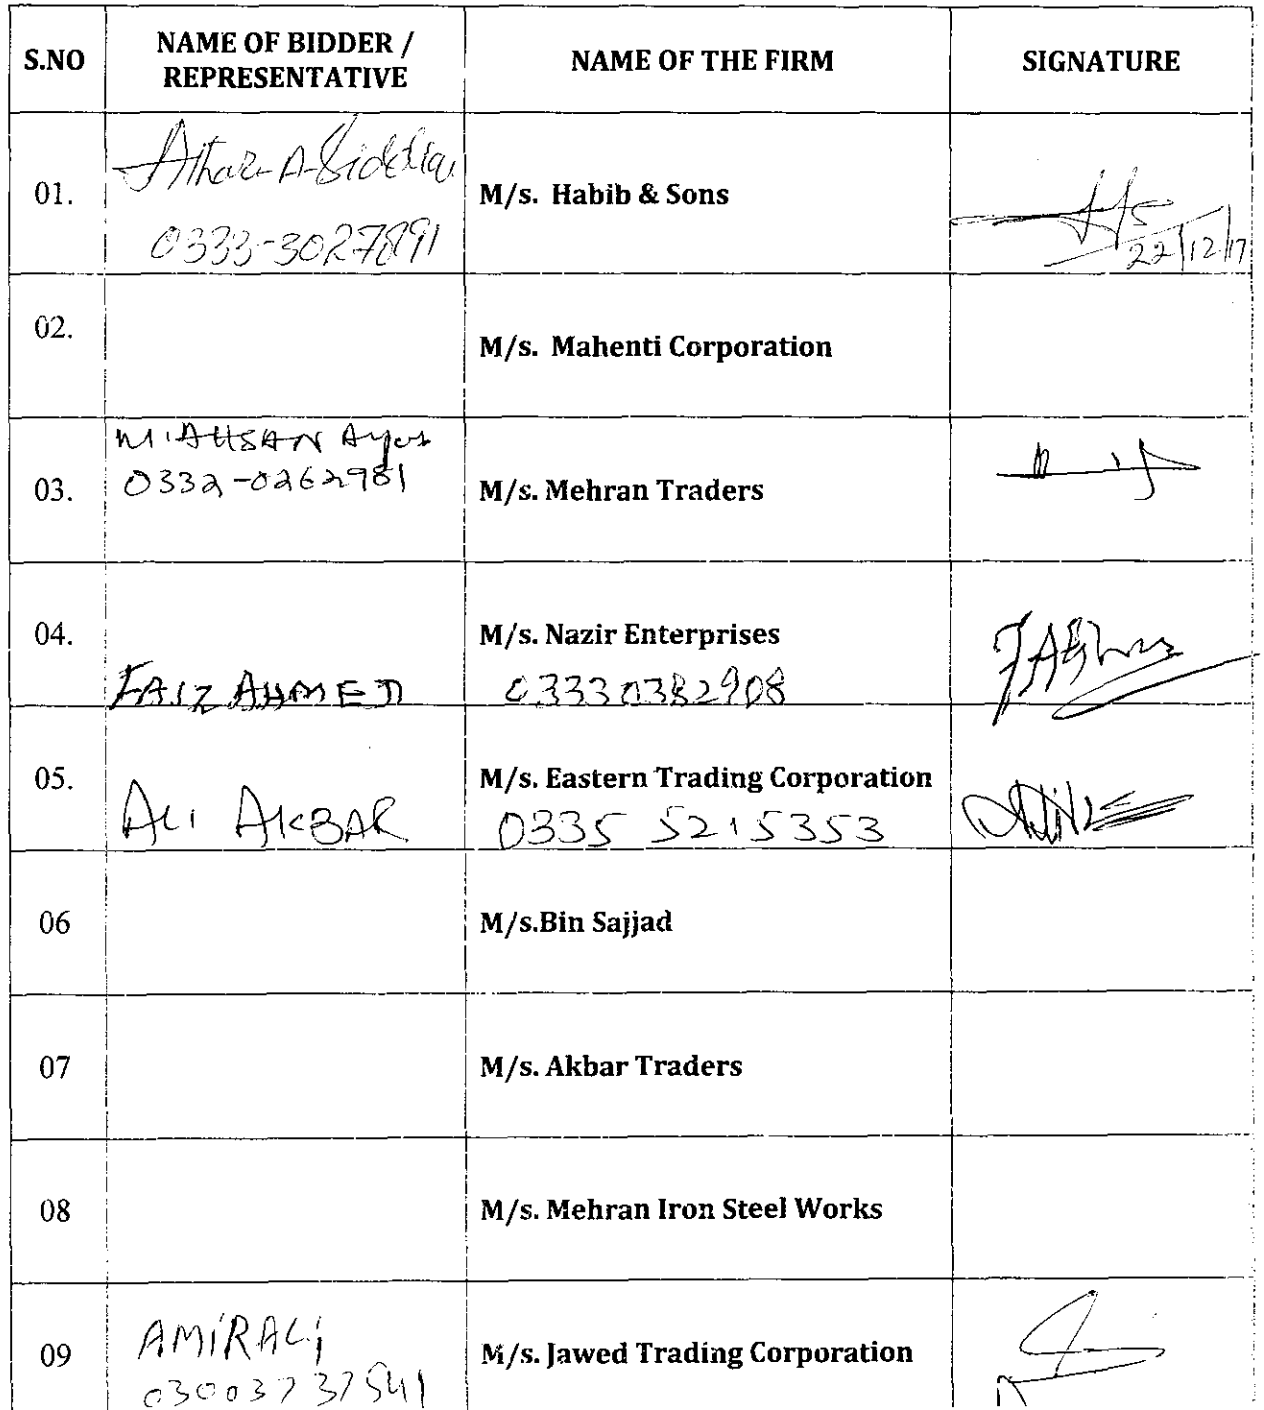 S.NO
NAME OF BIDDER /
REPRESENTATIVE
NAME OF THE FIRM
SIGNATURE
01.
Athar-A-Siddiqui
0333-3027891
M/s. Habib & Sons
22/12/17
02.
M/s. Mahenti Corporation
03.
M. AHSAN
0332-0262981
M/s. Mehran Traders
04.
FAIZ AHMED
M/s. Nazir Enterprises
03330382908
05.
ALI AKBAR
M/s. Eastern Trading Corporation
0335 5215353
06
M/s.Bin Sajjad
07
M/s. Akbar Traders
08
M/s. Mehran Iron Steel Works
09
AMIRALI
03003737541
M/s. Jawed Trading Corporation